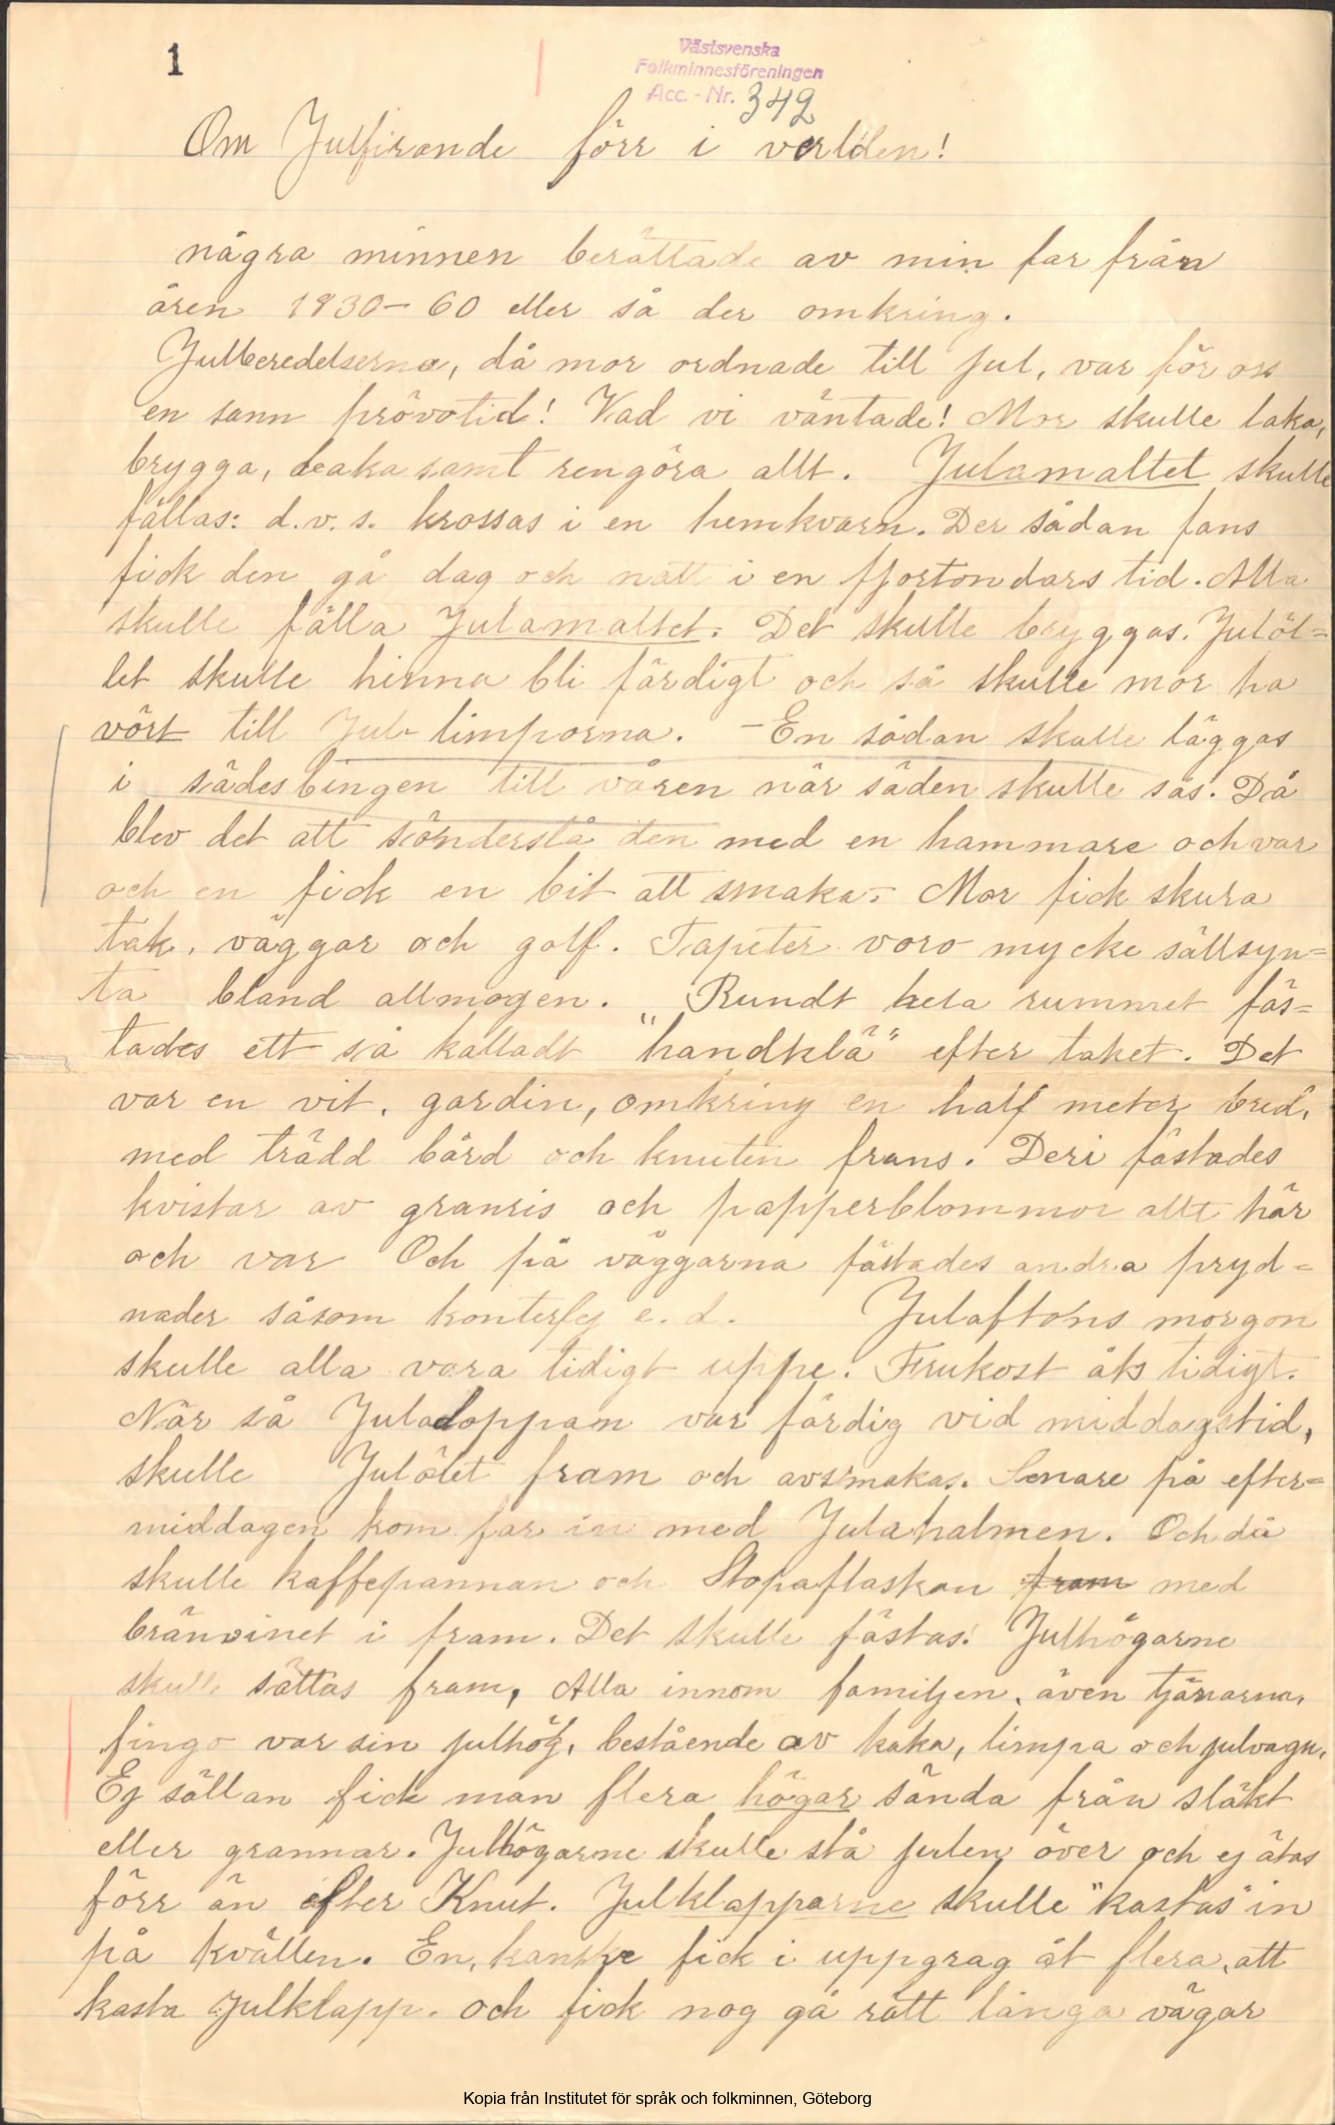 1
Västsvenska
Folkminnesföreningen
Acc. - Nr. 342
Om Julfirande förr i verlden!
några minnen berättade av min far från
åren 1830-60 eller så der omkring.
Julberedelserna, då mor ordnade till jul, var för oss
en sann prövotid! Vad vi väntade! Mor skulle laka,
brygga, baka samt rengöra allt. Julamaltet skulle
fällas: d.v.s. krossas i en hemkvarn. Der sådan fans
fick den gå dag och natt i en fjortondars tid. Alla
skulle fälla Julamaltet. Det skulle bryggas. Julöl=
let skulle hinna bli färdigt och så skulle mor ha
vört till Jul-limporna. - En sådan skulle läggas
i sädesbingen till våren när säden skulle sås. Då
blev det att sönderslå den med en hammare och var
och en fick en bit att smaka. - Mor fick skura
tak, väggar och golf. Tapeter voro mycke sällsyn=
ta bland allmogen. Rundt hela rummet fäs=
tades ett så kalladt "handklä" efter taket. Det
var en vit, gardin, omkring en half meter bred,
med trädd bård och knuten frans. Deri fästades
kvistar av granris och papperblommor allt här
och var Och på väggarna fästades andra pryd=
nader såsom konterfej e. d. Julaftons morgon
skulle alla vara tidigt uppe. Frukost åts tidigt.
När så Juladoppan var färdig vid middagstid,
skulle Julölet fram och avsmakas. Senare på efter=
middagen kom far in med Julahalmen. Och då
skulle kaffepannan och Stopaflaskan fram med
bränvinet i fram. Det skulle fästas. Julhögarne
skulle sättas fram, Alla innom familjen, även tjänarna,
fingo var sin julhög, bestående av kaka, limpa och julvagn.
Ej sällan fick man flera högar sända från släkt
eller grannar. Julhögarne skulle stå julen över och ej ätas
förr än efter Knut. Julklapparne skulle "kastas" in
på kvällen. En, kanske fick i uppgrag åt flera, att
kasta Julklapp. och fick nog gå rätt långa vägar
Kopia från Institutet för språk och folkminnen, Göteborg